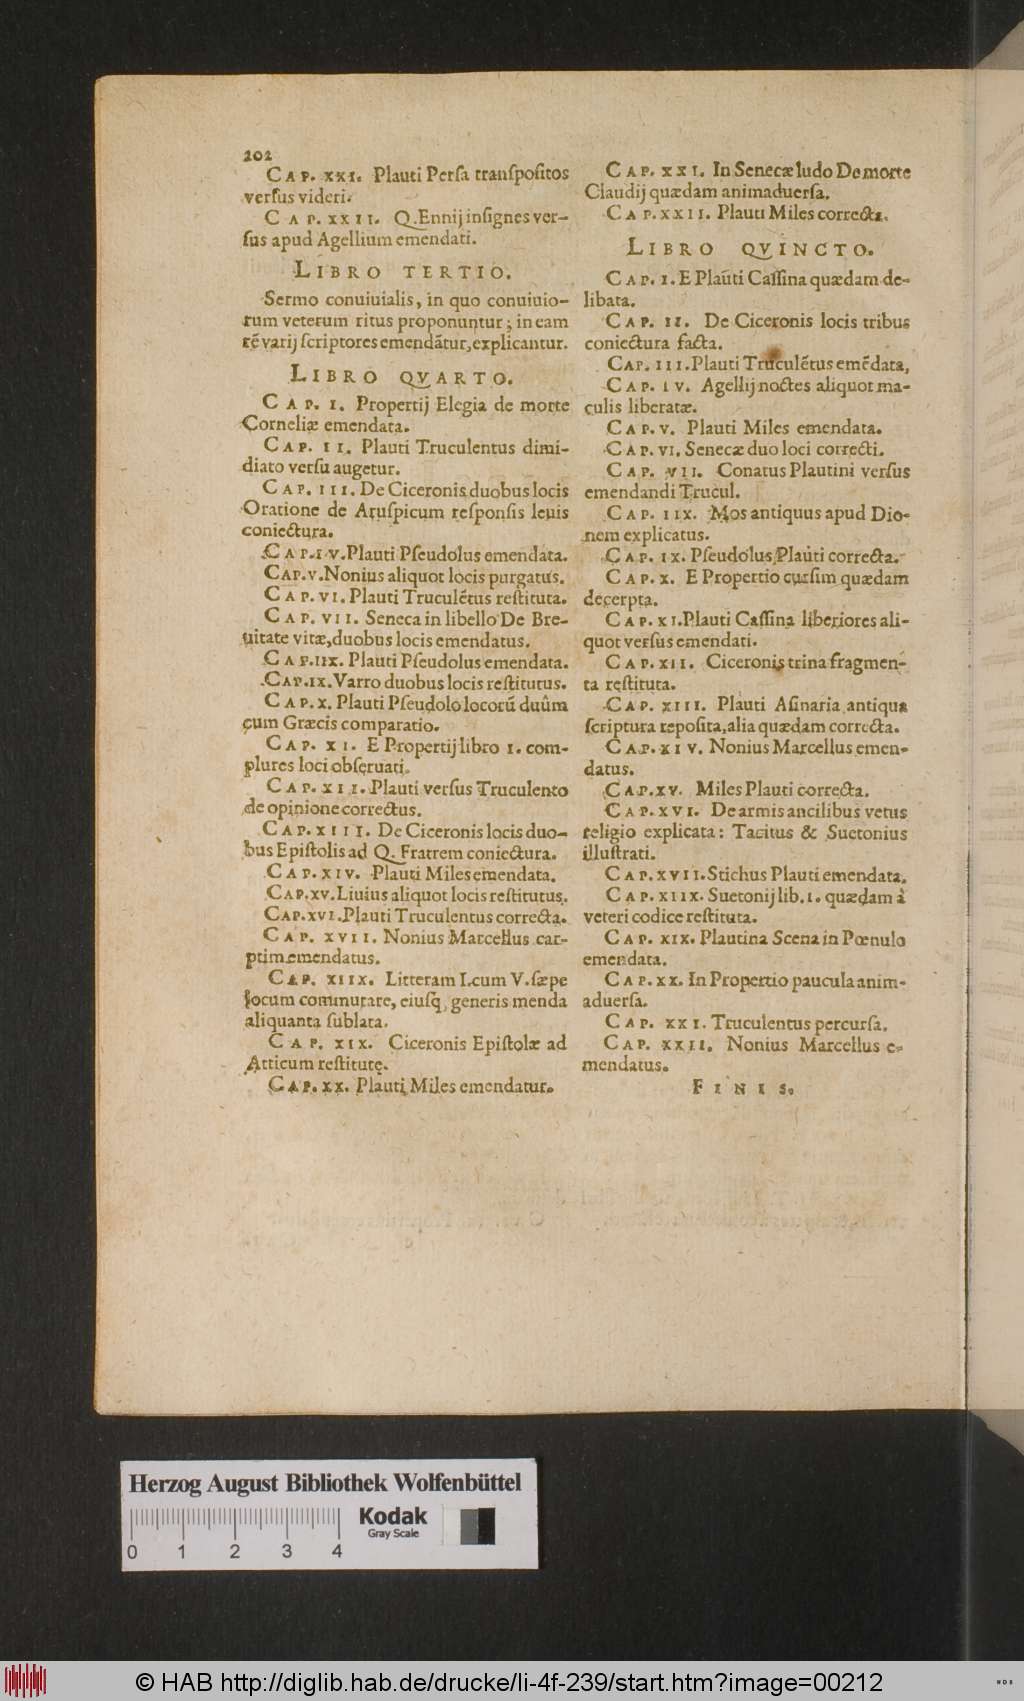 202
CAP. XXI. Plauti Persa transpositos
versus videri.
CAP. XXII. Q. Ennij insignes ver-
sus apud Agellium emendati.
LIBRO TERTIO.
Sermo conuiuialis, in quo conuiuio-
rum veterum ritus proponuntur; in eam
rẽ varij scriptores emendãtur, explicantur.
LIBRO QVARTO.
CAP. I. Propertij Elegia de morte
Corneliæ emendata.
CAP. II. Plauti Truculentus dimi-
diato versu augetur.
CAP. III. De Ciceronis duobus locis
Oratione de Aruspicum responsis leuis
coniectura.
CAP. IV. Plauti Pseudolus emendata.
CAP. V. Nonius aliquot locis purgatus.
CAP. VI. Plauti Truculẽtus restituta.
CAP. VII. Seneca in libello De Bre-
uitate vitæ, duobus locis emendatus.
CAP. IIX. Plauti Pseudolus emendata.
CAP. IX. Varro duobus locis restitutus.
CAP. X. Plauti Pseudolo locorũ duûm
cum Græcis comparatio.
CAP. XI. E Propertij libro I. com-
plures loci obseruati.
CAP. XII. Plauti versus Truculento
de opinione correctus.
CAP. XIII. De Ciceronis locis duo-
bus Epistolis ad Q. Fratrem coniectura.
CAP. XIV. Plauti Miles emendata.
CAP. XV. Liuius aliquot locis restitutus.
CAP. XVI. Plauti Truculentus correcta.
CAP. XVII. Nonius Marcellus car-
ptim emendatus.
CAP. XIIX. Litteram I. cum V. sæpe
locum commutare, eiusq, generis menda
aliquanta sublata.
CAP. XIX. Ciceronis Epistolæ ad
Atticum restitutę.
CAP. XX. Plauti Miles emendatur.
CAP. XXI. In Senecæ ludo De morte
Claudij quædam animaduersa.
CAP. XXII. Plauti Miles correcta.
LIBRO QVINCTO.
CAP. I. E Plauti Cassina quædam de-
libata.
CAP. II. De Ciceronis locis tribus
coniectura facta.
CAP. III. Plauti Truculẽtus emẽdata,
CAP. IV. Agellij noctes aliquot ma-
culis liberatæ.
CAP. V. Plauti Miles emendata.
CAP. VI. Senecæ duo loci correcti.
CAP. VII. Conatus Plautini versus
emendandi Trucul.
CAP. IIX. Mos antiquus apud Dio-
nem explicatus.
CAP. IX. Pseudolus Plauti correcta.
CAP. X. E Propertio cursim quædam
decerpta.
CAP. XI. Plauti Cassina liberiores ali-
quot versus emendati.
CAP. XII. Ciceronis trina fragmen-
ta restituta.
CAP. XIII. Plauti Asinaria antiqua
scriptura reposita, alia quædam correcta.
CAP. XIV. Nonius Marcellus emen-
datus.
CAP. XV. Miles Plauti correcta.
CAP. XVI. De armis ancilibus vetus
religio explicata: Tacitus & Suetonius
illustrati.
CAP. XVII. Stichus Plauti emendata.
CAP. XIIX. Suetonij lib. I. quædam à
veteri codice restituta.
CAP. XIX. Plautina Scena in Pœnulo
emendata.
CAP. XX. In Propertio paucula anim-
aduersa.
CAP. XXI. Truculentus percursa.
CAP. XXII. Nonius Marcellus e-
mendatus.
FINIS.
Herzog August Bibliothek Wolfenbüttel
Kodak
Gray Scale
0 1 2 3 4
© HAB http://diglib.hab.de/drucke/li-4f-239/start.htm?image=00212